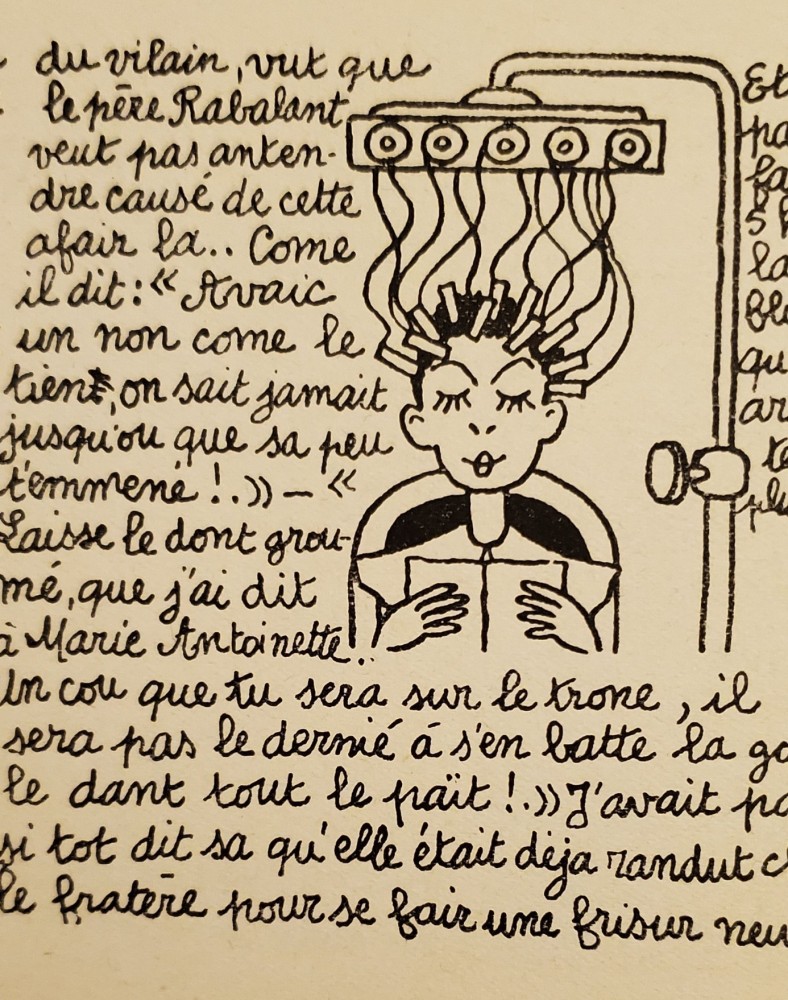 du vilain, vut que
le père Rabalant
veut pas anten-
dre causé de cette
afair la.. Come
il dit : « Avaic
un non come le
tient, on sait jamait
jusqu'ou que sa peu
t'emmené !.» — «
Laisse le dont grou-
mé, que j'ai dit
à Marie Antoinette..
Et
pa
la
qu
ar
te
plu
Un cou que tu sera sur le trone, il
sera pas le dernié à s'en batte la
le dant tout le paït !.» J'avait pa
si tot dit sa qu'elle était déja randut c
le fratère pour se fair une frisur neu